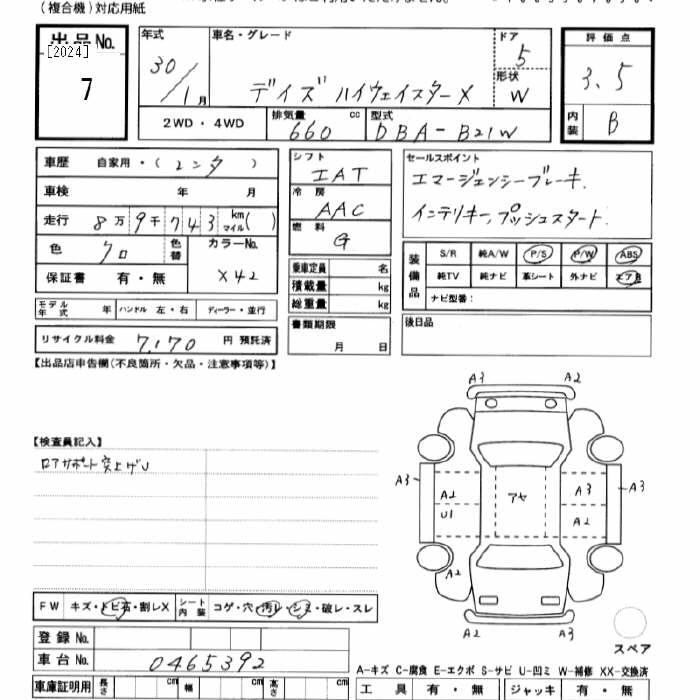 (複合機)対応用紙
出品No.
[2024]
7
年式
30/1月
車名・グレード
デイズ ハイウェイスターX
ドア
5
形状
W
評価点
3.5
内装
B
2WD・4WD
排気量
660 cc
型式
DBA-B21W
車歴 自家用・(レンタ)
車検 年 月
走行 8万9千743 km マイル( )
色 クロ
色替
カラーNo.
X42
保証書 有・無
モデル年式 年 ハンドル 左・右 ディーラー・並行
リサイクル料金 7,170 円 預託済
シフト
IAT
冷房
AAC
燃料
G
乗車定員 名
積載量 kg
総重量 kg
書類期限
月 日
セールスポイント
エマージェンシーブレーキ.
インテリキー,プッシュスタート.
装備品
S/R 純A/W P/S P/W ABS
純TV 純ナビ 革シート 外ナビ エアB
ナビ型番:
後日品
【出品店申告欄(不良箇所・欠品・注意事項等)】
【検査員記入】
ロアサポート突上ゲU
A3 A2
A3 A2 U1 アヤ A3 A2 A3
A2
A2 A3
スペア
FW キズ・トビ石・割レX シート内装 コゲ・穴・汚レ・シミ・破レ・スレ
登録No.
車台No. 0465392
車庫証明用 長さ cm 幅 cm 高さ cm
A-キズ C-腐食 E-エクボ S-サビ U-凹ミ W-補修 XX-交換済
工具 有・無 ジャッキ 有・無